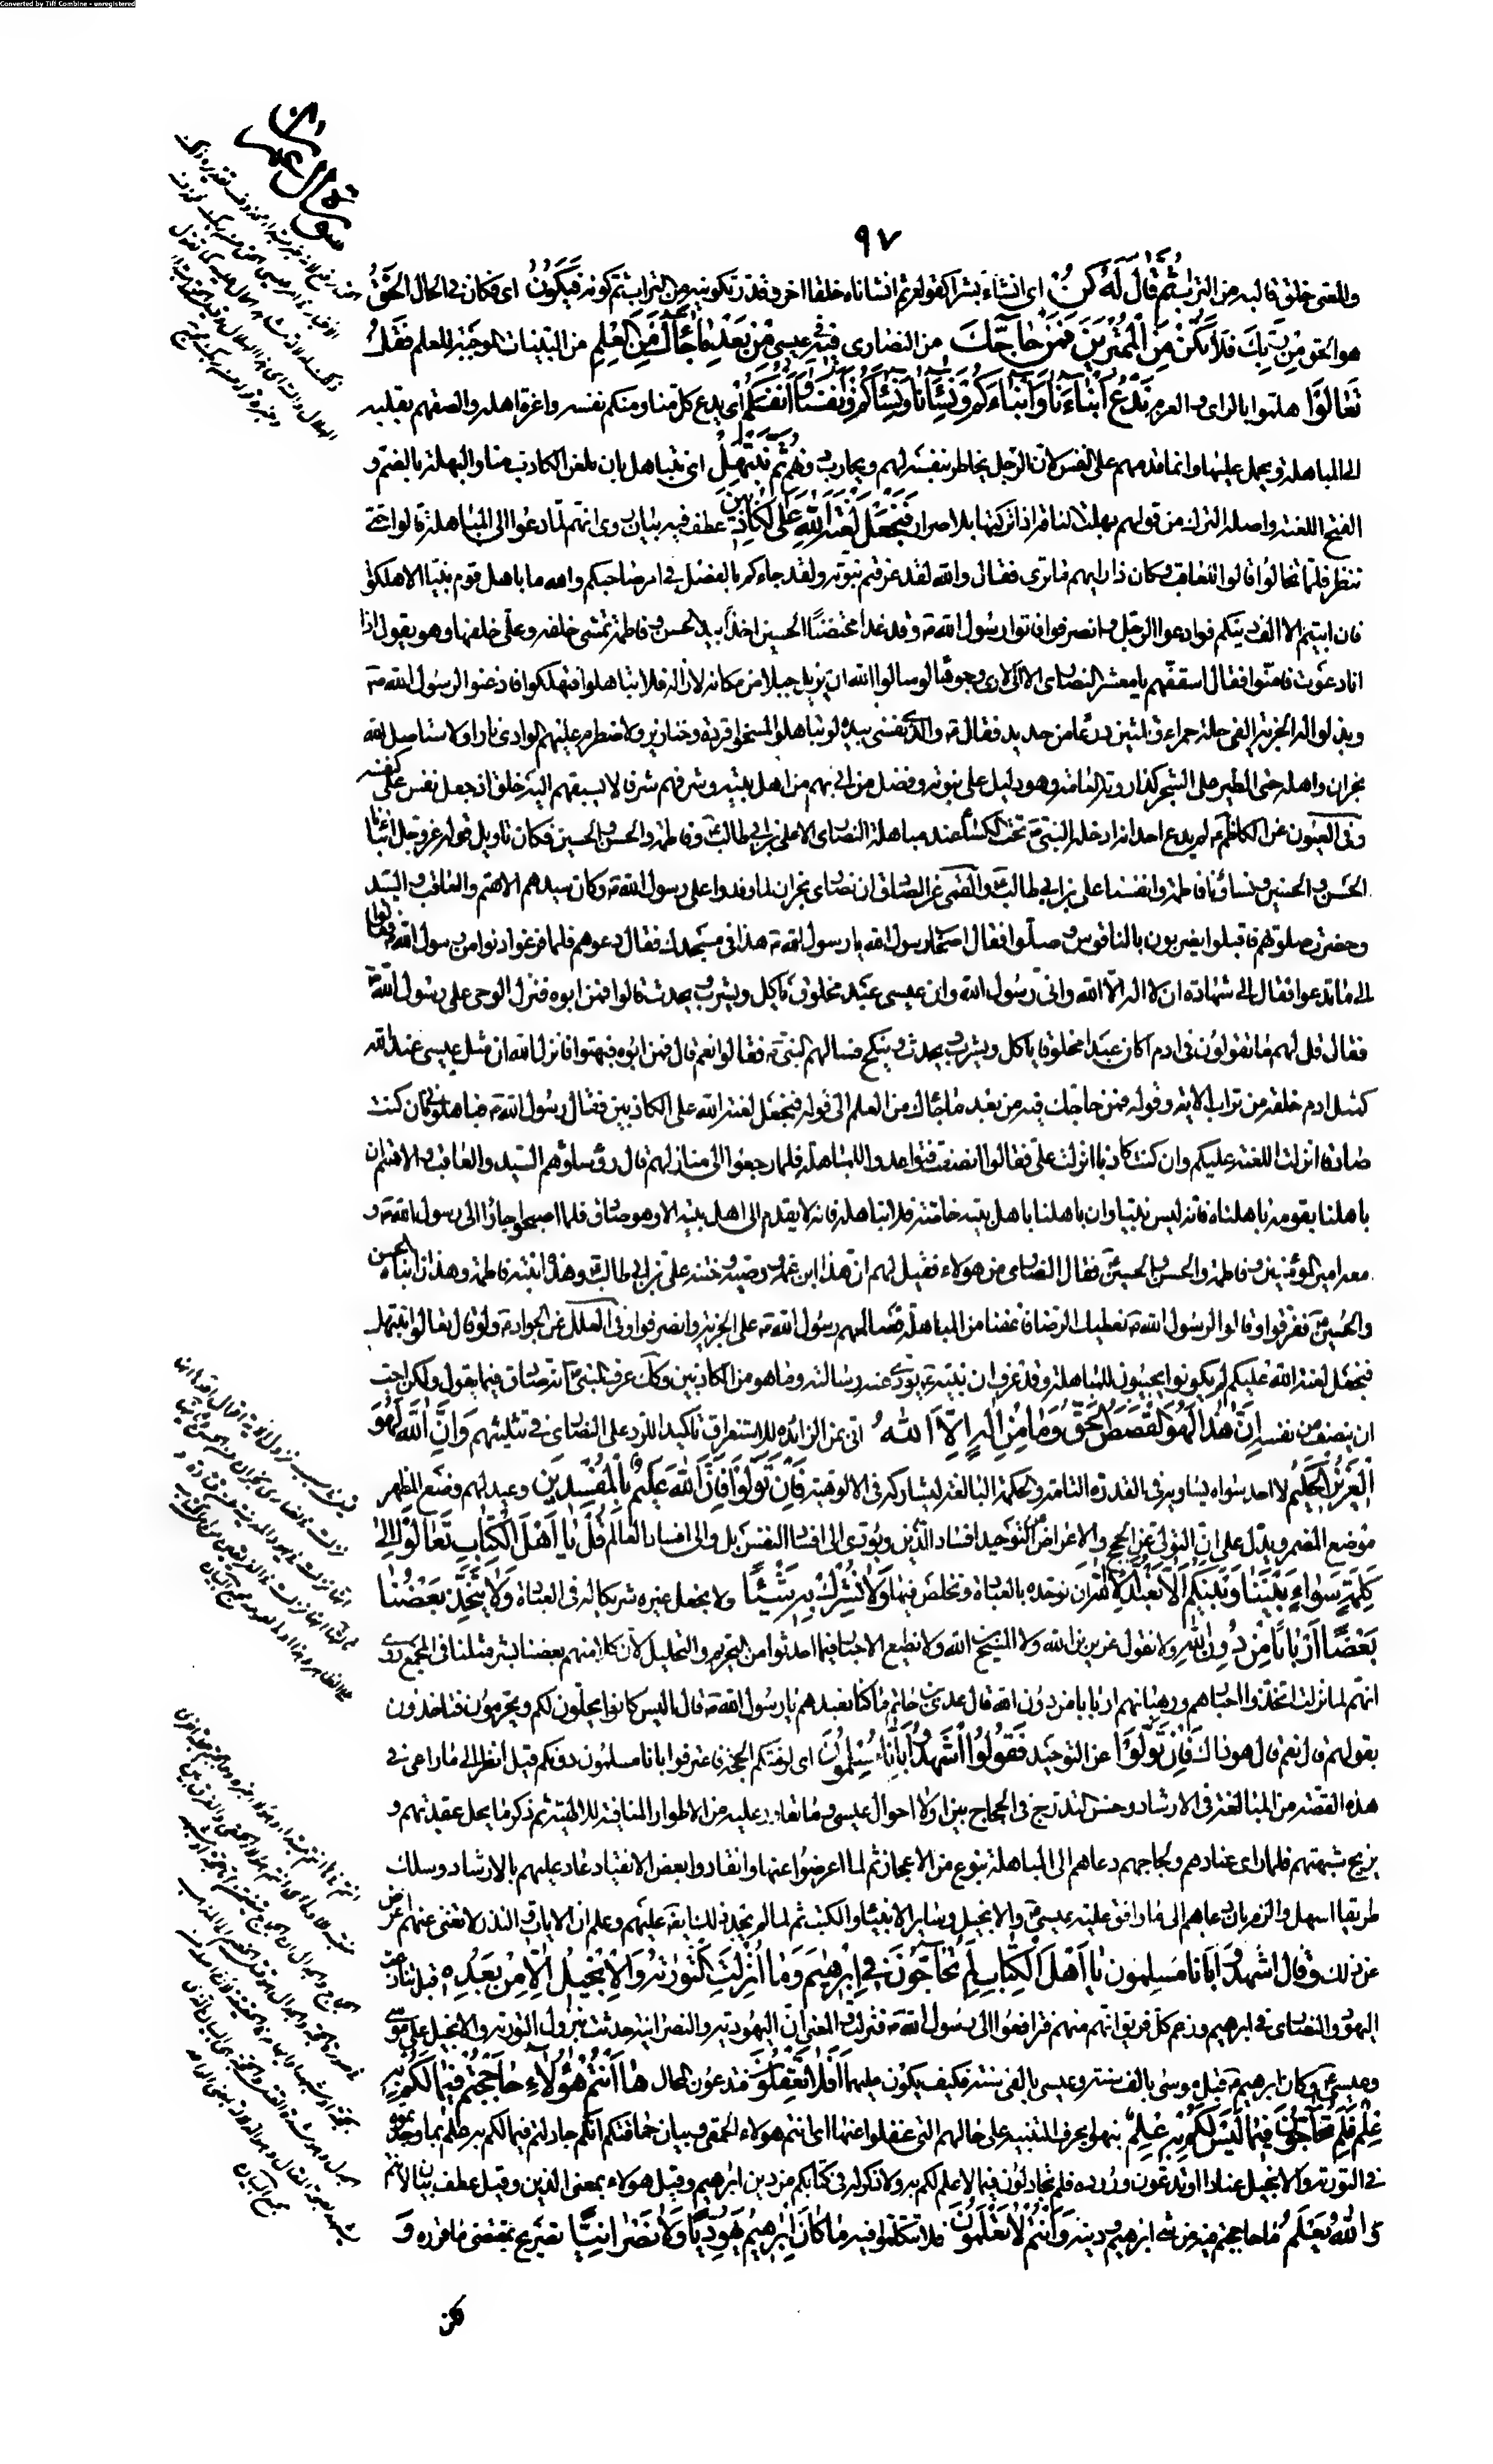 Converted by Tiff Combine - unregistered
سورة آل عمران
٩٧
والمعنى خلق قالبه من التراب ثُمَّ قَالَ لَهُ كُنْ اى انشاء بشرا كقوله ثم انشاناه خلقا اخر وقدر تكوينه من التراب ثم كونه فَيَكُونُ اى فكان فى الحال الْحَقُّ
هو الحق مِنْ رَبِّكَ فَلَا تَكُنْ مِنَ الْمُمْتَرِينَ فَمَنْ حَاجَّكَ من النصارى فِيهِ فى عيسى مِنْ بَعْدِ مَا جَائَكَ مِنَ الْعِلْمِ من البينات الموجبة للعلم فَقُلْ
تَعَالَوْا هلموا بالراى والعزم نَدْعُ أَبْنَاءَنَا وَأَبْنَاءَكُمْ وَنِسَائَنَا وَنِسَائَكُمْ وَأَنْفُسَنَا وَأَنْفُسَكُمْ اى يدع كل منا ومنكم نفسه واعزة اهله والصقهم بقلبه
الى المباهلة ويحمل عليها وانما قدمهم على النفس لان الرجل يخاطر بنفسه لهم ويحارب دونهم ثُمَّ نَبْتَهِلْ اى نتباهل بان نلعن الكاذب منا والبهلة بالضم و
الفتح اللعنة واصله الترك من قولهم بهلت الناقة اذا تركتها بلا صرار فَنَجْعَلْ لَعْنَةَ اللَّهِ عَلَى الْكَاذِبِينَ عطف فيه بيان روى انهم لما دعوا الى المباهلة قالوا حتى
ننظر فلما تخالوا قالوا للعاقب وكان ذا رايهم ما ترى فقال والله لقد عرفتم نبوته ولقد جاءكم بالفصل فى امر صاحبكم والله ما باهل قوم نبيا الا هلكوا
فان ابيتم الا الف دينكم فوادعوا الرجل وانصرفوا فاتوا رسول الله ص وقد غدا محتضنا الحسين اخذا بيد الحسن وفاطمة تمشى خلفه وعلى خلفها وهو يقول اذا
انا دعوت فامنوا فقال اسقفهم يا معشر النصارى انى لارى وجوها لو سالوا الله ان يزيل جبلا من مكانه لازاله فلا تباهلوا فتهلكوا فاذعنوا لرسول الله ص
وبذلوا له الجزية الفى حلة حمراء وثلثين درعا من حديد فقال ص والذى نفسى بيده لو تباهلوا لمسخوا قردة وخنازير ولاضطرم عليهم الوادى نارا ولاستاصل الله
نجران واهله حتى الطير على الشجر كذا روته العامة وهو دليل على نبوته وفضل من اتى بهم من اهل بيته وشرفهم شرفا لا يسبقهم اليه خلق اذ جعل نفس على كنفسه
وفى العيون عن الكاظم ع لم يدع احد انه ادخله النبى ص تحت الكساء عند مباهلة النصارى الا على بن ابى طالب ع وفاطمة والحسن والحسين فكان تاويل قوله عز وجل ابنائنا
الحسن والحسين ونسائنا فاطمة وانفسنا على بن ابى طالب ع والقمى عن الصادق ان نصارى نجران لما وفدوا على رسول الله ص وكان سيدهم الاهتم والعاقب والسيد
وحضرت صلوتهم فاقبلوا يضربون بالناقوس وصلوا فقال اصحاب رسول الله يا رسول الله ص هذا فى مسجدك فقال دعوهم فلما فرغوا دنوا من رسول الله ص فقالوا
الى ما تدعو فقال الى شهادة ان لا اله الا الله وانى رسول الله وان عيسى عبد مخلوق ياكل ويشرب ويحدث قالوا فمن ابوه فنزل الوحى على رسول الله ص
فقال قل لهم ما تقولون فى ادم اكان عبدا مخلوقا ياكل ويشرب ويحدث وينكح فسالهم النبى ص فقالوا نعم قال فمن ابوه فبهتوا فانزل الله ان مثل عيسى عند الله
كمثل ادم خلقه من تراب الاية وقوله فمن حاجك فيه من بعد ما جائك من العلم الى قوله فنجعل لعنة الله على الكاذبين فقال رسول الله ص فباهلونى فان كنت
صادقا انزلت اللعنة عليكم وان كنت كاذبا انزلت على فقالوا انصفت فتواعدوا للمباهلة فلما رجعوا الى منازلهم قال رؤساؤهم السيد والعاقب والاهتم ان
باهلنا بقومه باهلناه فانه ليس نبيا وان باهلنا باهل بيته خاصة فلا نباهله فانه لا يقدم الى اهل بيته الا وهو صادق فلما اصبحوا جاؤا الى رسول الله ص و
معه امير المؤمنين وفاطمة والحسن والحسين ع فقال النصارى من هولاء فقيل لهم ان هذا ابن عمه ووصيه وختنه على بن ابى طالب ع وهذه ابنته فاطمة وهذان ابناه الحسن
والحسين ع ففرقوا وقالوا لرسول الله ص نعطيك الرضا فاعفنا من المباهلة فصالحهم رسول الله ص على الجزية وانصرفوا وفى العلل عن الجواد ع ولو قال تعالوا نبتهل
فنجعل لعنة الله عليكم لم يكونوا يجيبون للمباهلة وقد عرف ان نبيه ع مؤدى عنه رسالته وما هو من الكاذبين وكذلك عرف النبى ص انه صادق فيما يقول ولكن احب
ان ينصف من نفسه إِنَّ هَذَا لَهُوَ الْقَصَصُ الْحَقُّ وَمَا مِنْ إِلَهٍ إِلَّا اللَّهُ اتى بمن الزائدة للاستغراق تاكيدا للرد على النصارى فى تثليثهم وَإِنَّ اللَّهَ لَهُوَ
الْعَزِيزُ الْحَكِيمُ لا احد سواه يساويه فى القدرة التامة والحكمة البالغة ليشاركه فى الالوهية فَإِنْ تَوَلَّوْا فَإِنَّ اللَّهَ عَلِيمٌ بِالْمُفْسِدِينَ وعيد لهم وضع المظهر
موضع المضمر ويدل على ان التولى عن الحجج والاعراض عن التوحيد افساد للدين ويؤدى الى افساد النفس بل والى افساد العالم قُلْ يَا أَهْلَ الْكِتَابِ تَعَالَوْا إِلَى
كَلِمَةٍ سَوَاءٍ بَيْنَنَا وَبَيْنَكُمْ أَلَّا نَعْبُدَ إِلَّا اللَّهَ ان نوحده بالعبادة ونخلص فيها وَلَا نُشْرِكَ بِهِ شَيْئًا ولا نجعل غيره شريكا له فى العبادة وَلَا يَتَّخِذَ بَعْضُنَا
بَعْضًا أَرْبَابًا مِنْ دُونِ اللَّهِ ولا نقول عزير بن الله ولا المسيح بن الله ولا نطيع الاحبار فيما احدثوا من التحريم والتحليل لان كلا منهم بعضنا بشر مثلنا فى المجمع روى
انهم لما نزلت اتخذوا احبارهم ورهبانهم اربابا من دون الله قال عدى بن حاتم ما كنا نعبدهم يا رسول الله ص قال اليس كانوا يحلون لكم ويحرمون فتاخذون
بقولهم قال نعم قال هو ذاك فَإِنْ تَوَلَّوْا عن التوحيد فَقُولُوا اشْهَدُوا بِأَنَّا مُسْلِمُونَ اى لزمتكم الحجة فاعترفوا بانا مسلمون دونكم قيل انظر الى ما راعى فى
هذه القصة من المبالغة فى الارشاد وحسن التدرج فى الحجاج بين اولا احوال عيسى وما تعاور عليه من الاطوار المنافية للالهية ثم ذكر ما يحل عقدتهم و
يزيح شبهتهم فلما راى عنادهم ولجاجهم دعاهم الى المباهلة بنوع من الاعجاز ثم لما اعرضوا عنها وانقادوا بعض الانقياد عاد عليهم بالارشاد وسلك
طريقا اسهل والزم بان دعاهم الى ما وافق عليه عيسى ع والانجيل وساير الانبياء والكتب ثم لما لم يجد ذلك ايضا عليهم وعلم ان الايات والنذر لا تغنى عنهم اعرض
عن ذلك وقال اشهدوا بانا مسلمون يَا أَهْلَ الْكِتَابِ لِمَ تُحَاجُّونَ فِي إِبْرَهِيمَ وَمَا أُنْزِلَتِ التَّوْرَيةُ وَالْإِنْجِيلُ إِلَّا مِنْ بَعْدِهِ قيل تنازعت
اليهود والنصارى فى ابرهيم وزعم كل فريق انه منهم فترافعوا الى رسول الله ص فنزلت والمعنى ان اليهودية والنصرانية حدثت بنزول التورية والانجيل على موسى
وعيسى ع وكان ابرهيم ع قبل موسى بالف سنة وعيسى بالفى سنة فكيف يكون عليهما أَفَلَا تَعْقِلُونَ فتدعون المحال هَا أَنْتُمْ هَؤُلَاءِ حَاجَجْتُمْ فِيمَا لَكُمْ بِهِ
عِلْمٌ فَلِمَ تُحَاجُّونَ فِيمَا لَيْسَ لَكُمْ بِهِ عِلْمٌ نبهوا بحرف التنبيه على حالهم التى غفلوا عنها اى انتم هولاء الحمقى وبيان حماقتكم انكم جادلتم فيما لكم به علم بما وجدتموه
فى التورية والانجيل عنادا او تدعون وروده فلم تجادلون فيما لا علم لكم به ولا ذكر له فى كتابكم من دين ابرهيم وقيل هولاء بمعنى الذين وقيل عطف بيان لانتم
وَاللَّهُ يَعْلَمُ ما حاججتم فيه من شان ابرهيم ودينه وَأَنْتُمْ لَا تَعْلَمُونَ فلا تتكلموا فيه مَا كَانَ إِبْرَهِيمُ يَهُودِيًّا وَلَا نَصْرَانِيًّا تصريح بمقتضى ما قرره وَ
لكن